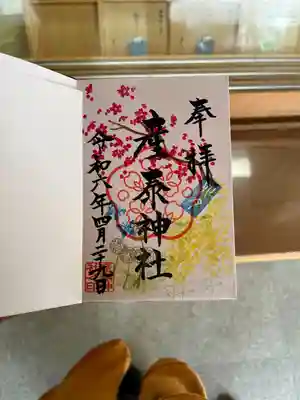 奉拝
産泰神社
令和六年四月二十九日